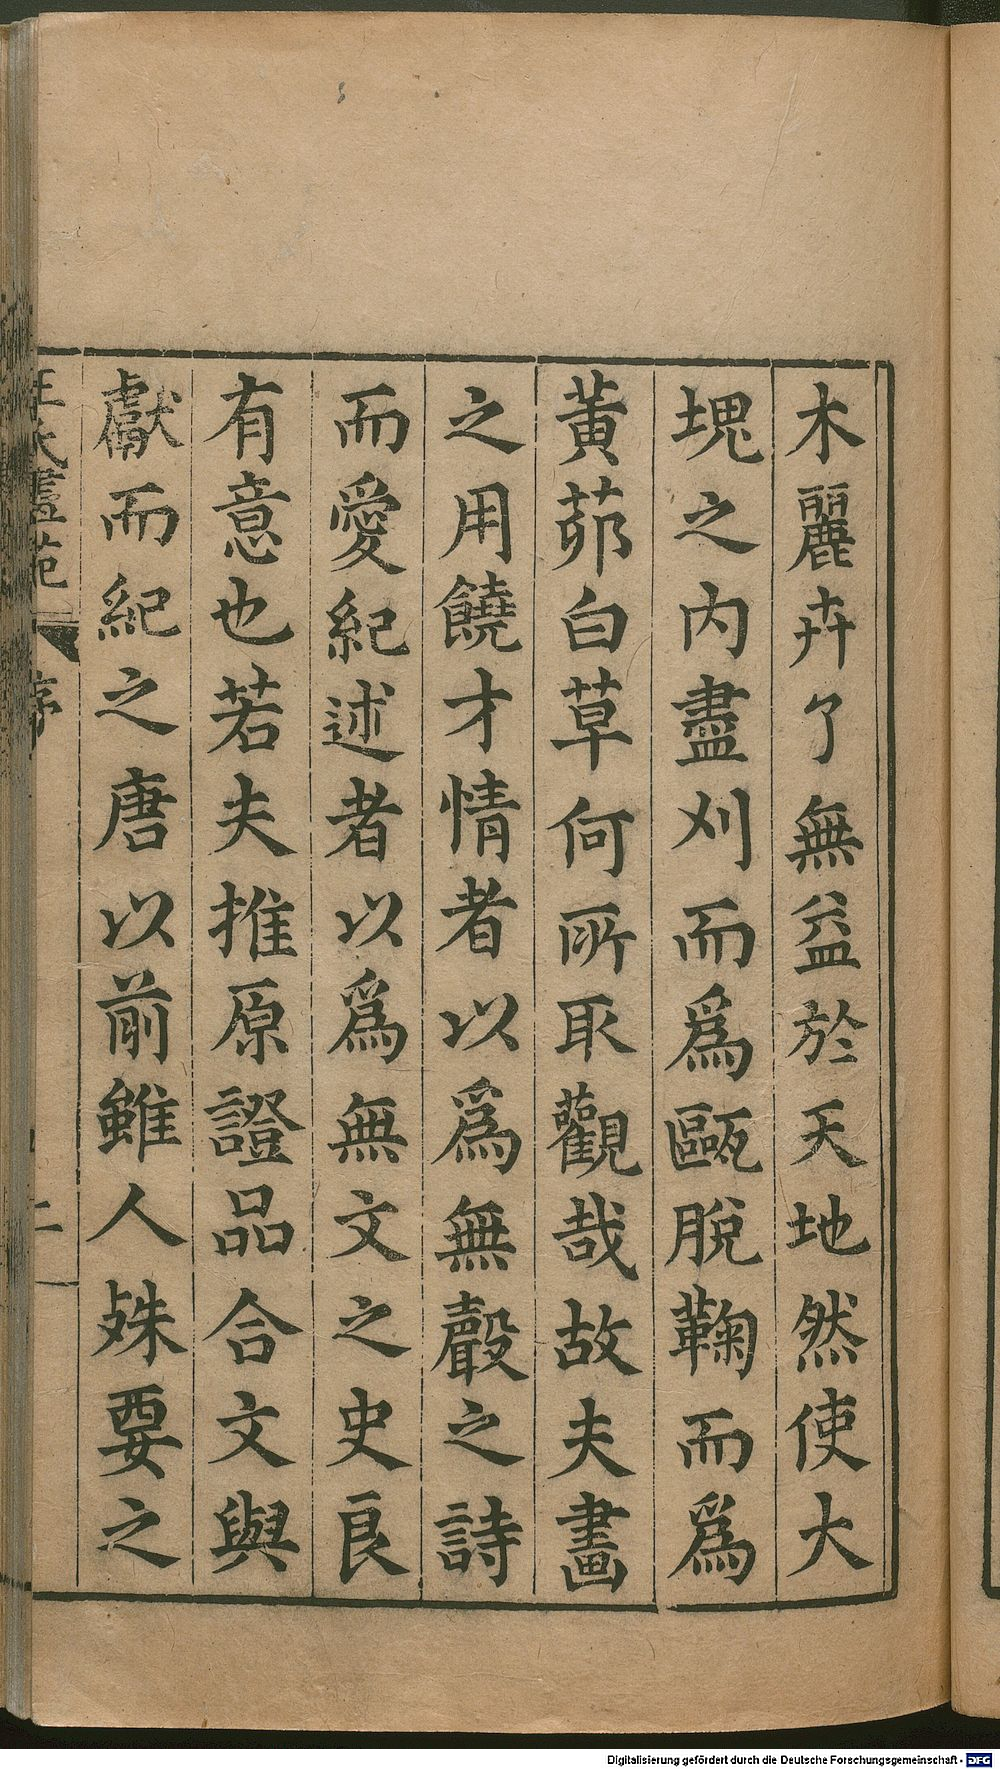 木麗卉了無益於天地然使大
塊之內盡刈而爲甌脫鞠而爲
黃茆白草何所取觀哉故夫畫
之用饒才情者以爲無聲之詩
而愛紀述者以爲無文之史良
有意也若夫推原證品合文與
獻而紀之唐以前雖人殊要之
王氏畫苑 序 二
Digitalisierung gefördert durch die Deutsche Forschungsgemeinschaft - DFG